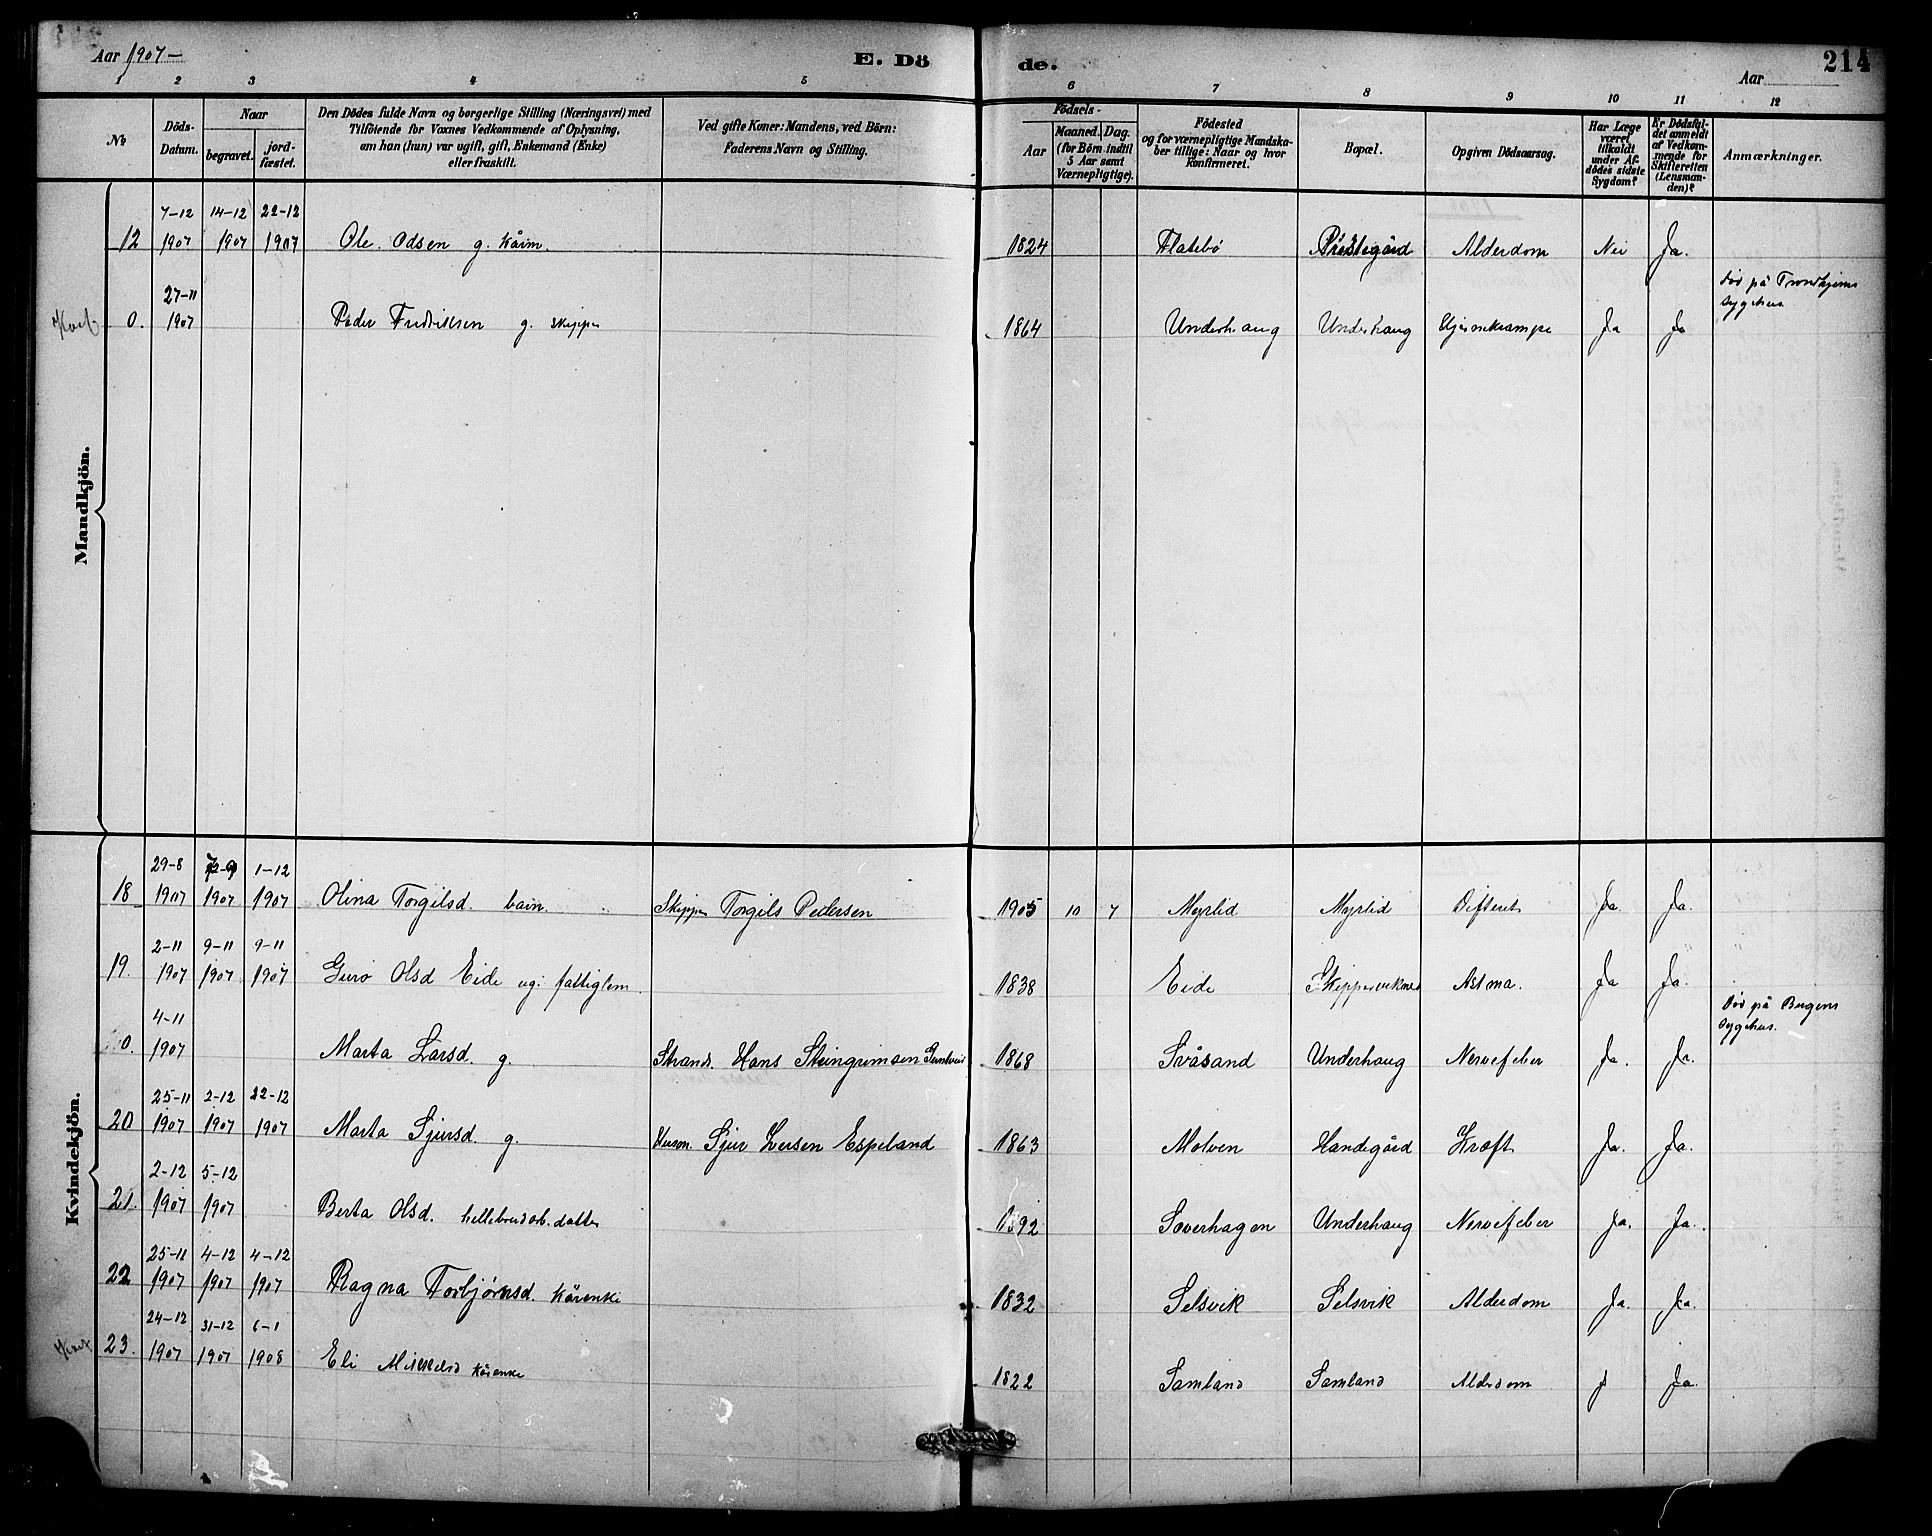 Aar 1907 –
E. Dö
de.
Aar
214
1 2 3 4 5 6 7 8 9 10 11 12
№
Döds-
Datum.
Naar
begravet.
jord-
fæstet.
Den Dödes fulde Navn og borgerlige Stilling (Næringsvei) med
Tilföiende for Voxnes Vedkommende af Oplysning,
om han (hun) var ugift, gift, Enkemand (Enke)
eller fraskilt.
Ved gifte Koner: Mandens, ved Börn:
Faderens Navn og Stilling.
Födsels-
Aar
Maaned. Dag.
(for Börn indtil
5 Aar samt
Værnepligtige).
Födested
og for værnepligtige Mandska-
ber tillige: Naar og hvor
Konfirmeret.
Bopæl.
Opgiven Dödsaarsag.
Har Læge
været
tilkaldt
under Af-
dödes sidste
Sygdom?
Er Dödsfal-
det anmeldt
af Vedkom-
mende for
Skifteretten
(Lensman-
den)?
Anmærkninger.
Mandkjön.
7-12 14-12 22-12
12 1907 1907 1907 Ole Odsen g. kårm. 1824 Flatebø Præstegård Alderdom Nei Ja.
27-11 død på Trondhjems
sygehus
0. 1907 Peder Fredriksen g. skipper 1864 Underhaug Underhaug Hjernekrampe Ja Ja
Kvindekjön.
29-8 1-12
18 1907 1907 1907 Olina Torgilsd. barn. Skipper Torgils Pedersen 1905 10 7 Myrlid Myrlid Difterit Ja. Ja.
2-11 9-11 9-11
19. 1907 1907 1907 Guro Olsd Eide ug. fattiglem. 1838 Eide Astma. Ja Ja.
4-11 Død på Bergens
Sygehus.
0. 1907 Marta Larsd. g. Strands. Hans Steingrimsen 1868 Svåsand Underhaug Nervefeber Ja. Ja.
25-11 2-12 22-12
20 1907 1907 1907 Marta Sjursd. g. Husm. Sjur Larsen Espeland 1863 Molven Handegård Kræft Ja. Ja.
2-12 5-12
21. 1907 1907 Berta Olsd. hellebrudarb. datter 1892 Soverhagen Underhaug Nervefeber Ja. Ja.
25-11 4-12 4-12
22 1907 1907 1907 Ragna Torbjørnsd. kårenke 1832 Selsvik Selsvik Alderdom Ja. Ja.
24-12 31-12 6-1
23. 1907 1907 1908 Eli Mikkelsd kårenke 1822 Samland Samland Alderdom J Ja.